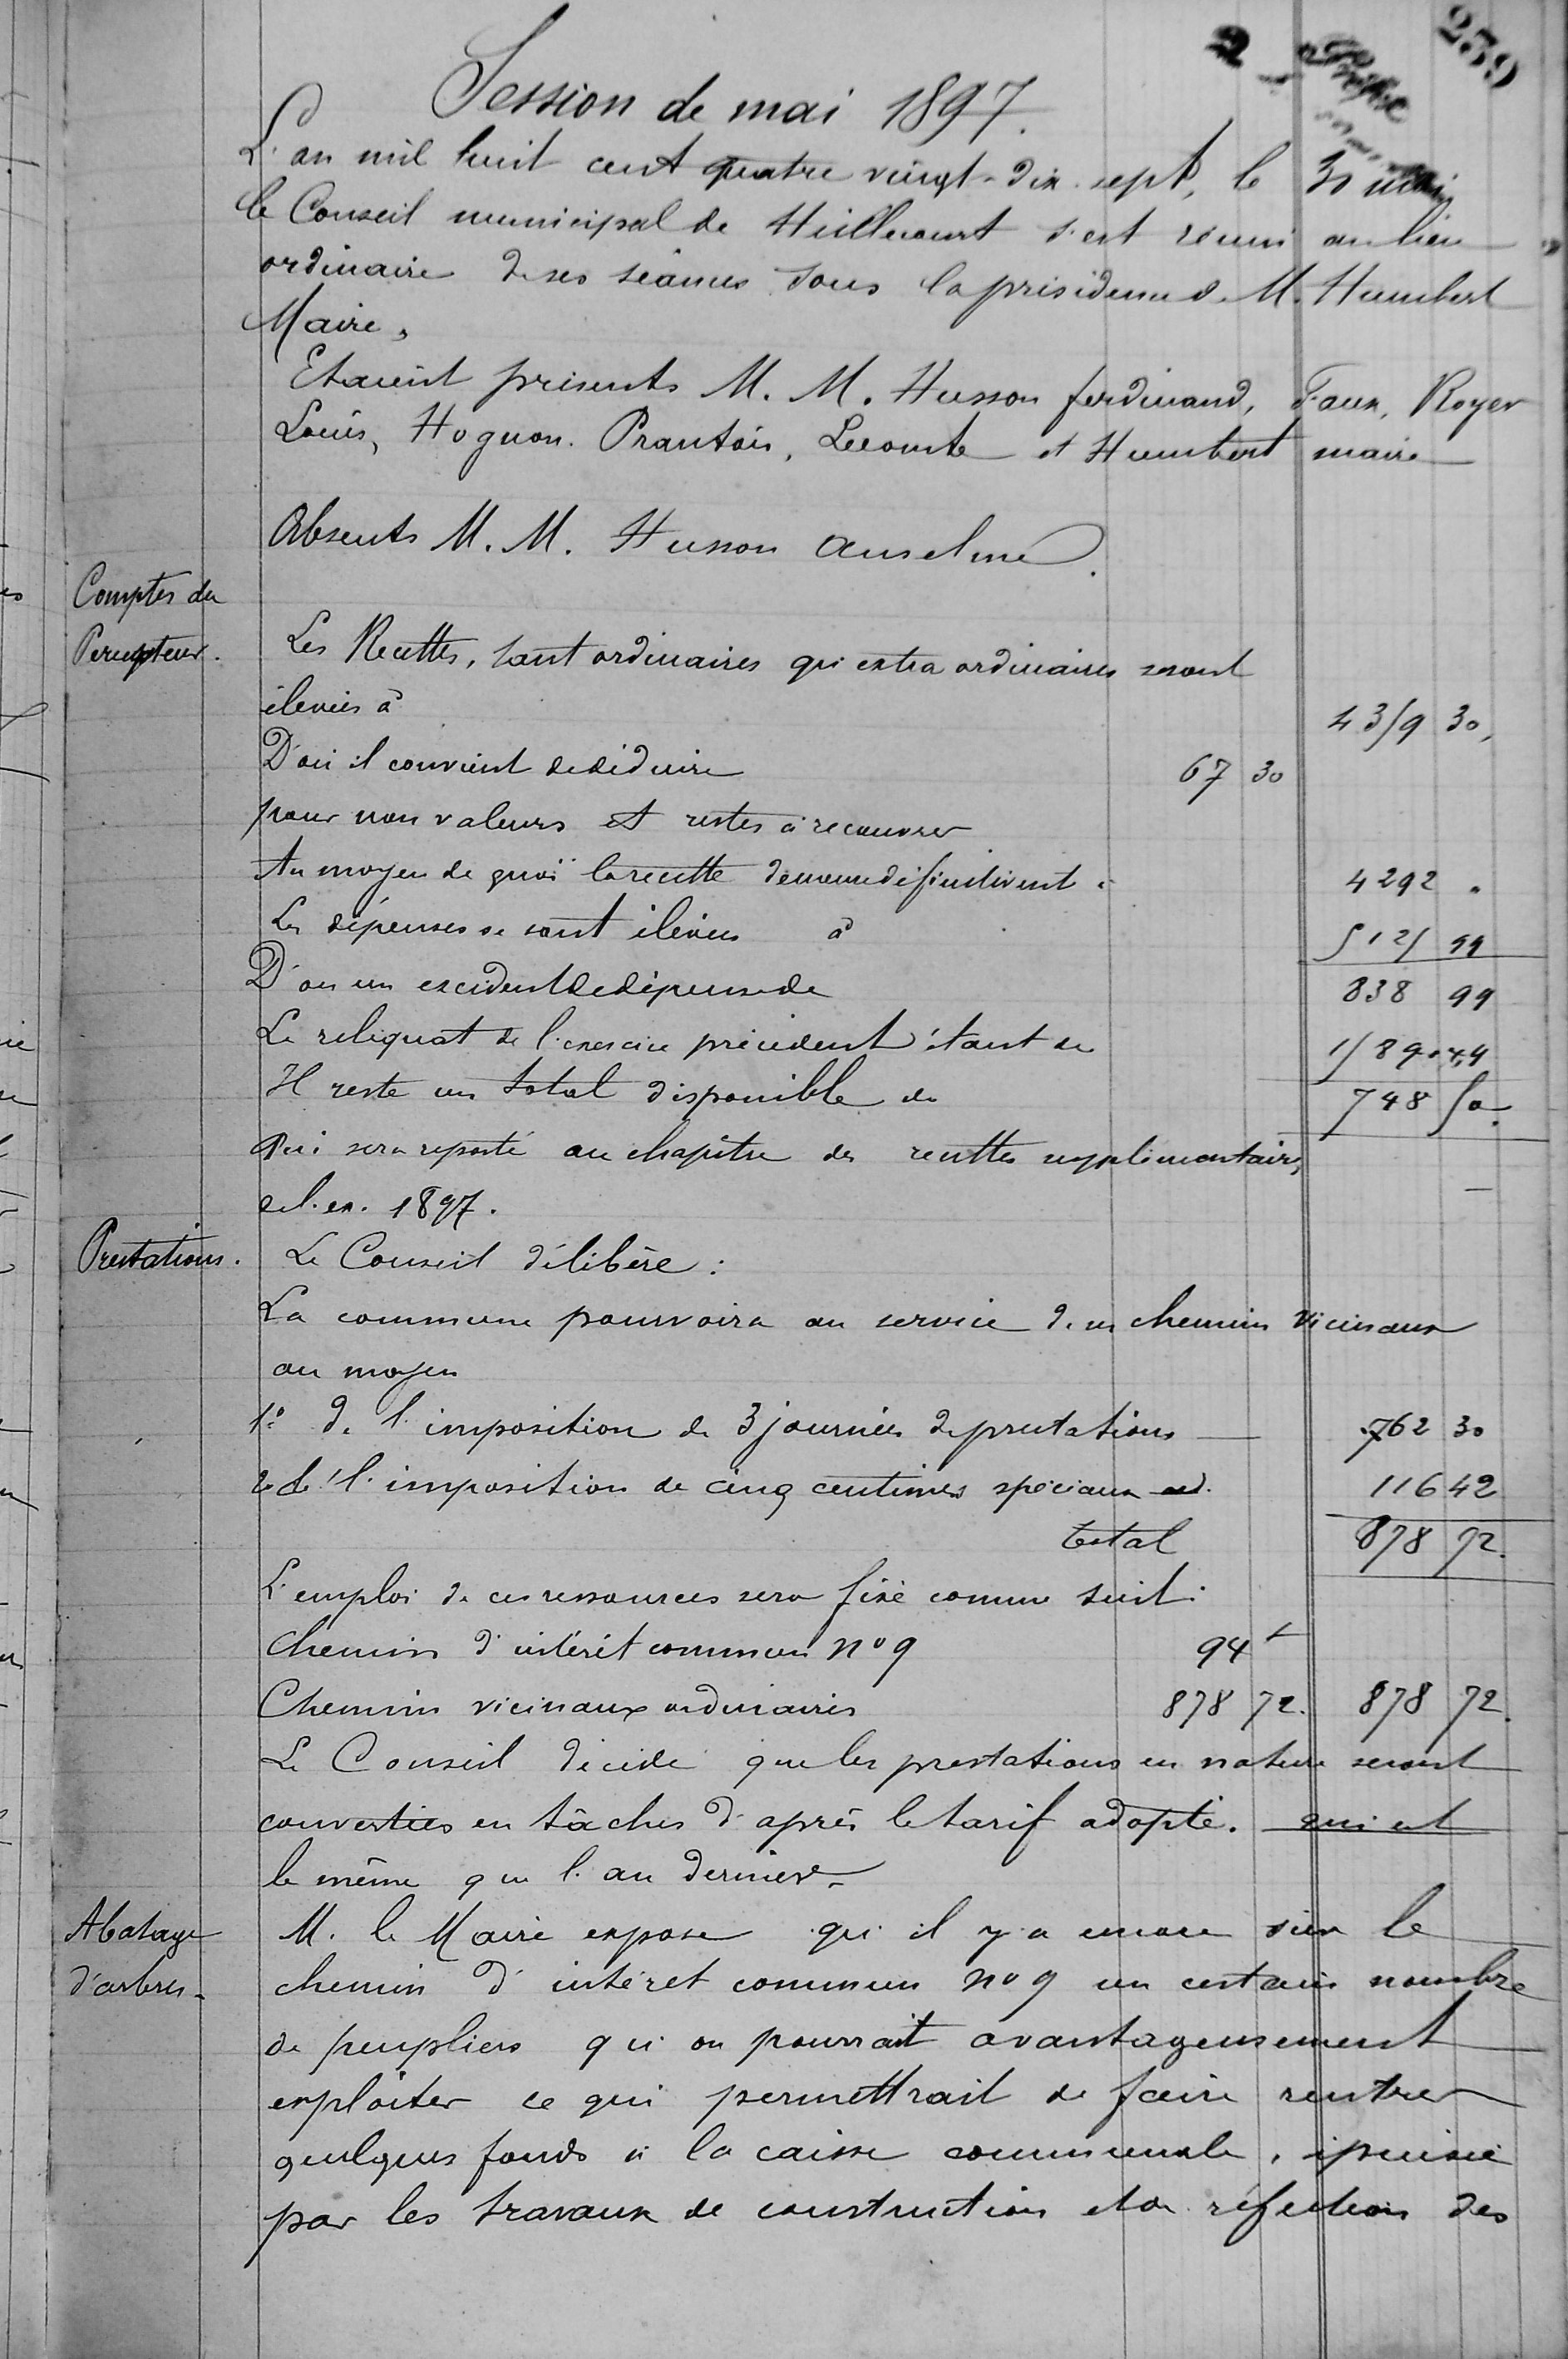 239
2
Session de mai 1897.
L'an mil huit cent quatre vingt-dix-sept, le 30 mai
le Conseil municipal de Huillecourt s'est réuni au lieu
ordinaire de ses séances sous la présidence de M. Humbert
Maire,
Etaient présents M. M. Husson ferdinand, Faux, Royer
Louis, Hognon. Prantois, Lecomte et Humbert maire
Absents M. M. Husson Anselme.
Comptes du
Percepteur.
Les Recettes, tant ordinaires qu'extra ordinaires seront
élevées à 4359 30,
D'où il convient de déduire 67 30
pour non valeurs et restes à recouvrer
Au moyen de quoi la recette demeure définitivent à 4292 "
Les dépenses se sont élevées à 5125 99
D'où un excédent de dépense de 838 99
Le reliquat de l'exercice précédent étant de 1589.49
Il reste un total disponible de 748 50.
Qui sera reporté au chapitre des recettes supplémentaires
de l'ex. 1897.
Prestations.
Le Conseil délibère :
La commune pourvoira au service de ses chemins vicinaux
au moyen
1º de l'imposition de 3 journées de prestations 762 30
2º de l'imposition de cinq centimes spéciaux 116 42
total 878 72.
L'emploi de ces ressources sera fixé comme suit :
Chemin d'intérêt commun nº 9 94
Chemins vicinaux ordinaires 878 72. 878 72.
Le Conseil décide que les prestations en nature seront
converties en tâches d'après le tarif adopté. qui est
le même que l'an dernier
Abatage
d'arbres.
M. le Maire expose qu'il y a encore sur le
chemin d'intéret commun nº 9 un certain nombre
de peupliers qu'on pourrait avantageusement
exploiter ce qui permettrait de faire rentrer
quelques fonds à la caisse communale, épuisée
par les travaux de construction et de réfection des